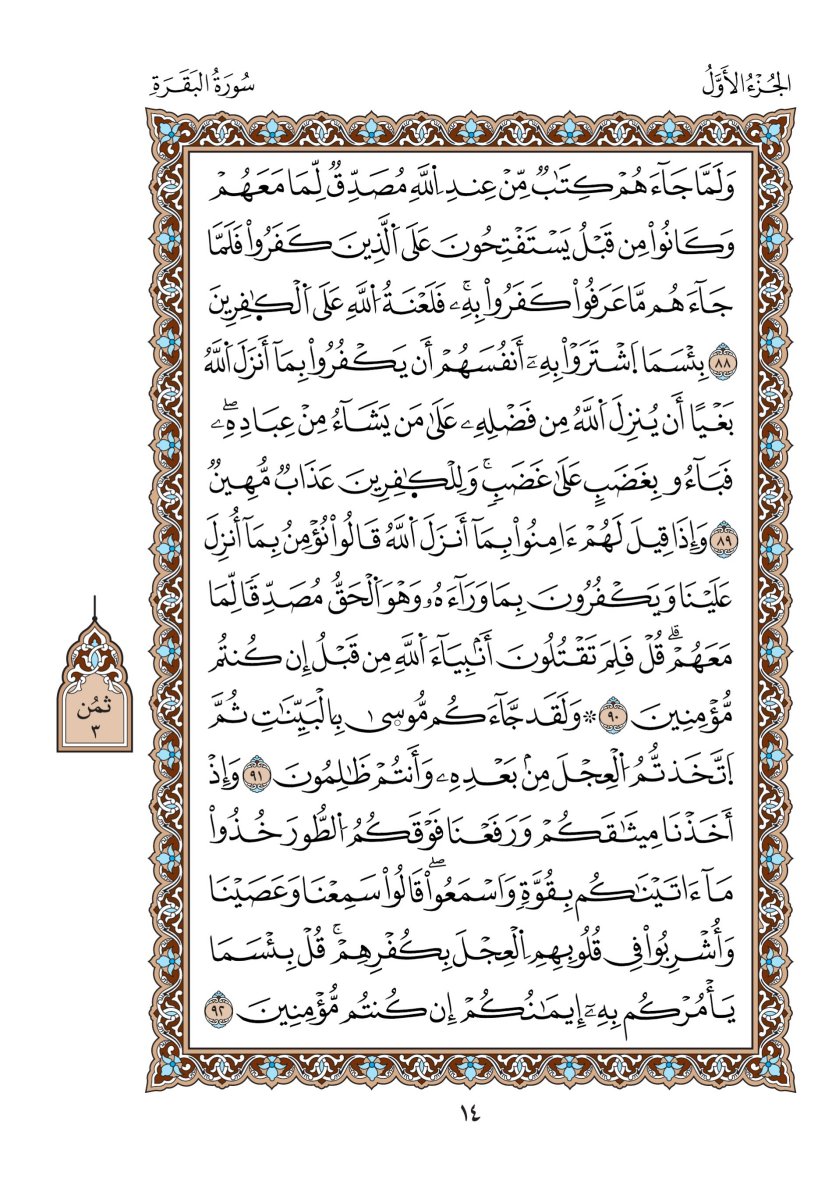 الجُزْءُ الأَوَّلُ
سُورَةُ البَقَرَةِ
وَلَمَّا جَآءَهُمْ كِتَٰبٌ مِّنْ عِندِ اِ۬للَّهِ مُصَدِّقٌ لِّمَا مَعَهُمْ
وَكَانُواْ مِن قَبْلُ يَسْتَفْتِحُونَ عَلَى اَ۬لَّذِينَ كَفَرُواْ فَلَمَّا
جَآءَهُم مَّا عَرَفُواْ كَفَرُواْ بِهِۦۚ فَلَعْنَةُ اُ۬للَّهِ عَلَى اَ۬لْكٰ۪فِرِينَ
٨٨ بِئْسَمَا اَ۪شْتَرَوْاْ بِهِۦٓ أَنفُسَهُمْ أَن يَكْفُرُواْ بِمَآ أَنزَلَ اَ۬للَّهُ
بَغْيًا أَن يُنزِلَ اَ۬للَّهُ مِن فَضْلِهِۦ عَلَىٰ مَن يَشَآءُ مِنْ عِبَادِهِۦۖ
فَبَآءُو بِغَضَبٍ عَلَىٰ غَضَبٍۚ وَلِلْكٰ۪فِرِينَ عَذَابٌ مُّهِينٌ
٨٩ وَإِذَا قِيلَ لَهُمْ ءَامِنُواْ بِمَآ أَنزَلَ اَ۬للَّهُ قَالُواْ نُؤْمِنُ بِمَآ أُنزِلَ
عَلَيْنَا وَيَكْفُرُونَ بِمَا وَرَآءَهُۥ وَهْوَ اَ۬لْحَقُّ مُصَدِّقًا لِّمَا
مَعَهُمْۗ قُلْ فَلِمَ تَقْتُلُونَ أَنۢبِيَآءَ اَ۬للَّهِ مِن قَبْلُ إِن كُنتُم
مُّؤْمِنِينَ ٩٠ ۞وَلَقَد جَّآءَكُم مُّوس۪ىٰ بِالْبَيِّنَٰتِ ثُمَّ
اَ۪تَّخَذتُّمُ اُ۬لْعِجْلَ مِنۢ بَعْدِهِۦ وَأَنتُمْ ظَٰلِمُونَ ٩١ وَإِذْ
أَخَذْنَا مِيثَٰقَكُمْ وَرَفَعْنَا فَوْقَكُمُ اُ۬لطُّورَ خُذُواْ
مَآ ءَاتَيْنَٰكُم بِقُوَّةٍ وَاسْمَعُواْۖ قَالُواْ سَمِعْنَا وَعَصَيْنَا
وَأُشْرِبُواْ فِي قُلُوبِهِمِ اِ۬لْعِجْلَ بِكُفْرِهِمْۚ قُلْ بِئْسَمَا
يَأْمُرْكُم بِهِۦٓ إِيمَٰنُكُمْ إِن كُنتُم مُّؤْمِنِينَ ٩٢
ثُمُن
٣
١٤